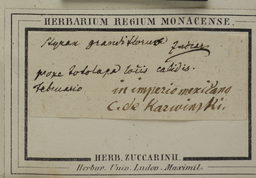 HERBARIUM REGIUM MONACENSE.
Styrax grandiflorus
prope todolapa locis calidis.
februario in imperio mexicano
C. de Karwinski.
HERB. ZUCCARINII.
Herbar. Univ. Ludov. Maximil.